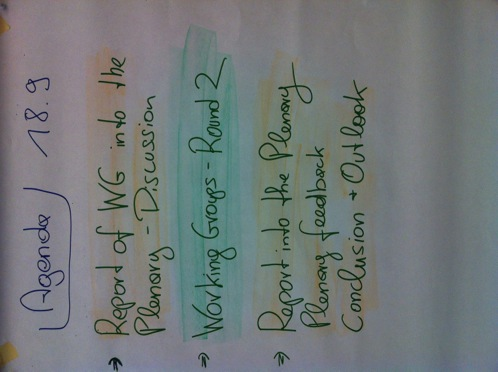 Agenda 18.9
⇒ Report of WG into the
Plenary - Discussion
⇒ Working Groups - Round 2
⇒ Report into the Plenary
Plenary feedback
Conclusion + Outlook